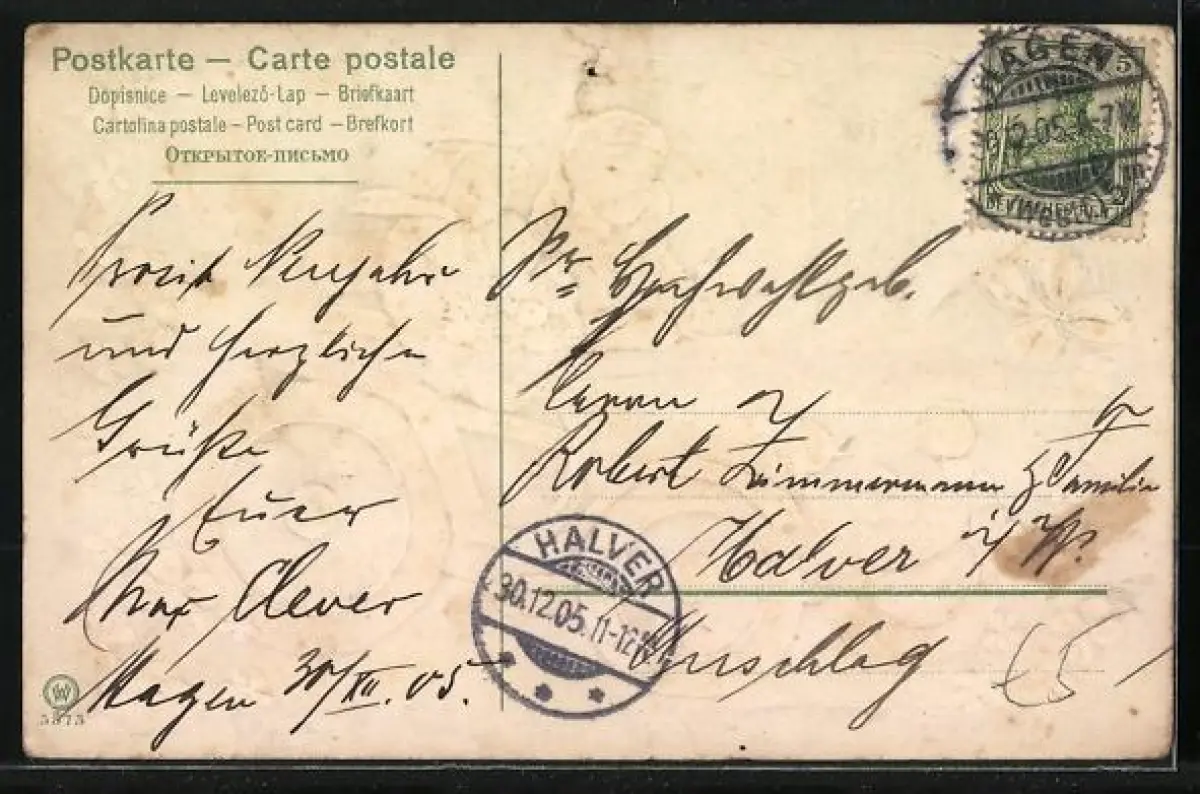 Postkarte — Carte postale
Dopisnice — Levelező-Lap — Briefkaart
Cartolina postale – Post card – Brefkort
Открытое-письмо
Prosit Neujahr
und herzliche
Grüße
Euer
Max Clever
Hagen 30/XII. 05.
5373
Sr. Hochwohlgeb.
Herrn
Robert Zimmermann & Familie
Halver i/W.
HAGEN
12.05. 6-7
(WESTF.)
5
HALVER
30.12.05. 11-12V.